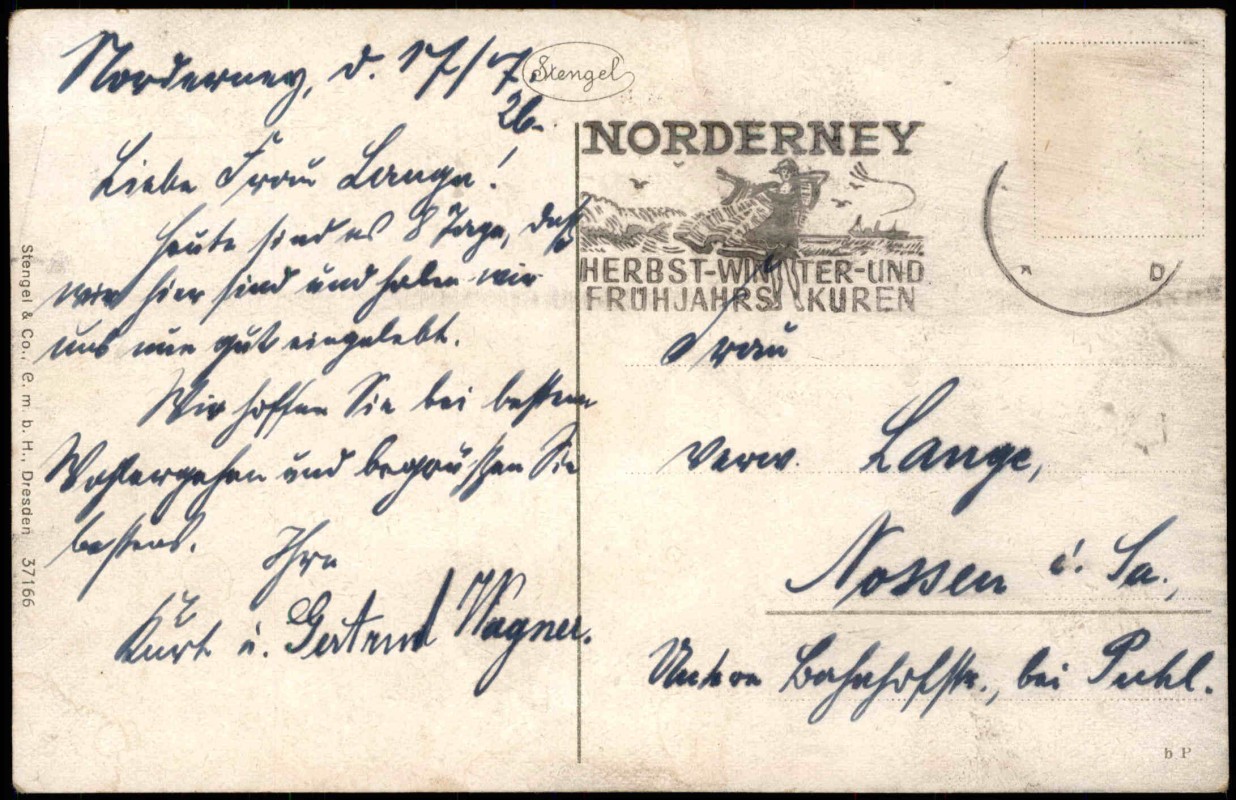 Norderney, d. 17/7.
26.
Stengel
Liebe Frau Lange!
Heute sind es 8 Tage, daß
wir hier sind und haben wir
uns nun gut eingelebt.
Wir hoffen Sie bei bestem
Wohlergehen und begrüßen Sie
bestens.
Ihre
Kurt u. Gertrud Wagner.
NORDERNEY
HERBST-WINTER-UND
FRÜHJAHRS KUREN
Frau
verw. Lange,
Nossen i. Sa.,
Untere Bahnhofstr., bei Puhl.
Stengel & Co., G. m. b. H., Dresden 37166
b P